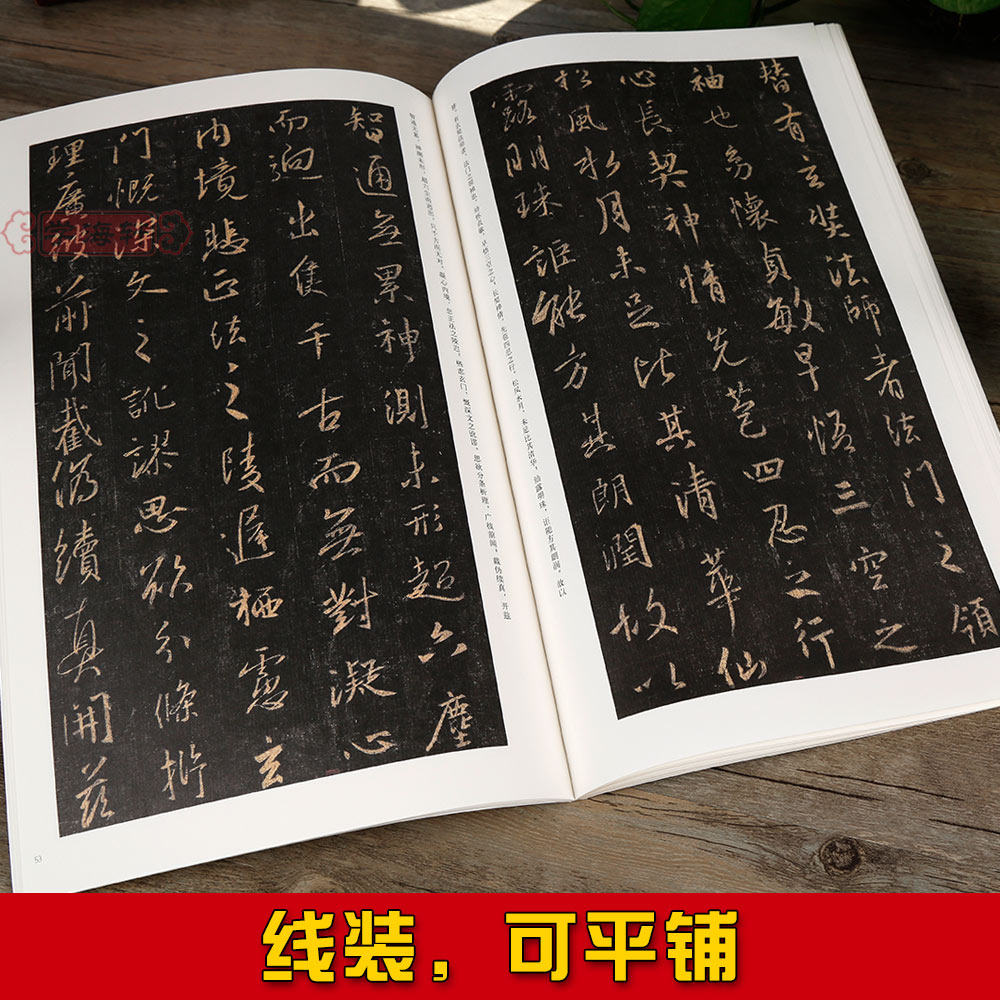 替有玄奘法師者法門之領
袖也幼懷貞敏早悟三空之
心長契神情先苞四忍之行
松風水月未足比其清華仙
露明珠詎能方其朗潤故以
替。有玄奘法师者，法门之领袖也。幼怀贞敏，早悟三空之心，长契神情，先苞四忍之行。松风水月，未足比其清华，仙露明珠，讵能方其朗润。故以
智通無累神測未形超六塵
而迥出隻千古而無對凝心
內境悲正法之陵遲栖慮玄
門慨深文之訛謬思欲分條析
理廣彼前聞截偽續真開茲
智通无累，神测未形，超六尘而迥出，只千古而无对。凝心内境，悲正法之陵迟，栖虑玄门，慨深文之讹谬。思欲分条析理，广彼前闻，截伪续真，开兹
53
线装，可平铺